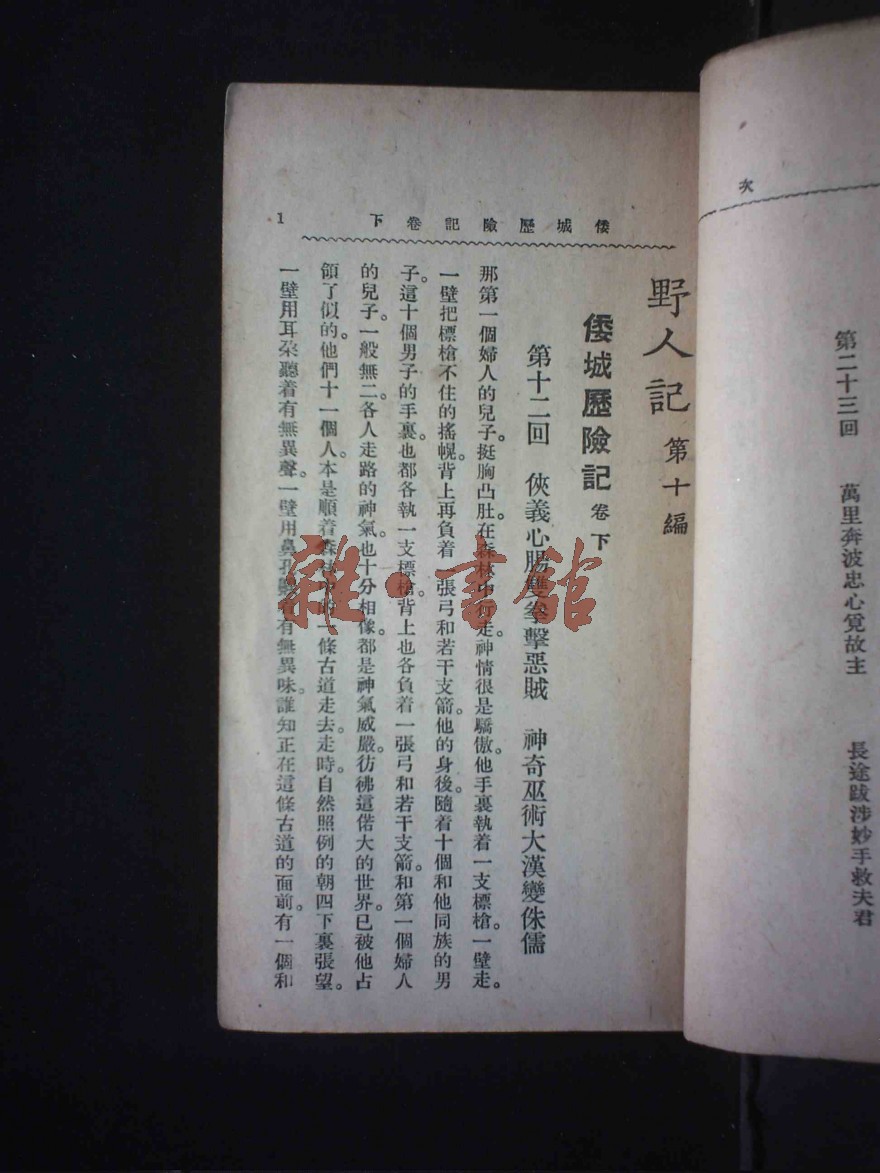 次
第二十三回　萬里奔波忠心覓故主　長途跋涉妙手救夫君
倭城歷險記卷下　1
野人記 第十編
倭城歷險記 卷下
第十二回　俠義心腸雙拳擊惡賊　神奇巫術大漢變侏儒
那第一個婦人的兒子。挺胸凸肚。在森林中行走。神情很是驕傲。他手裏執着一支標槍。一壁走。
一壁把標槍不住的搖幌。背上再負着一張弓和若干支箭。他的身後。隨着十個和他同族的男
子。這十個男子的手裏。也都各執一支標槍。背上也各負着一張弓和若干支箭。和第一個婦人
的兒子。一般無二。各人走路的神氣。也十分相像。都是神氣威嚴。彷彿這偌大的世界。已被他占
領了似的。他們十一個人。本是順着森林中的一條古道走去。走時。自然照例的朝四下裏張望。
一壁用耳朶聽着有無異聲。一壁用鼻孔嗅着有無異味。誰知正在這條古道的面前。有一個和
雜·書館